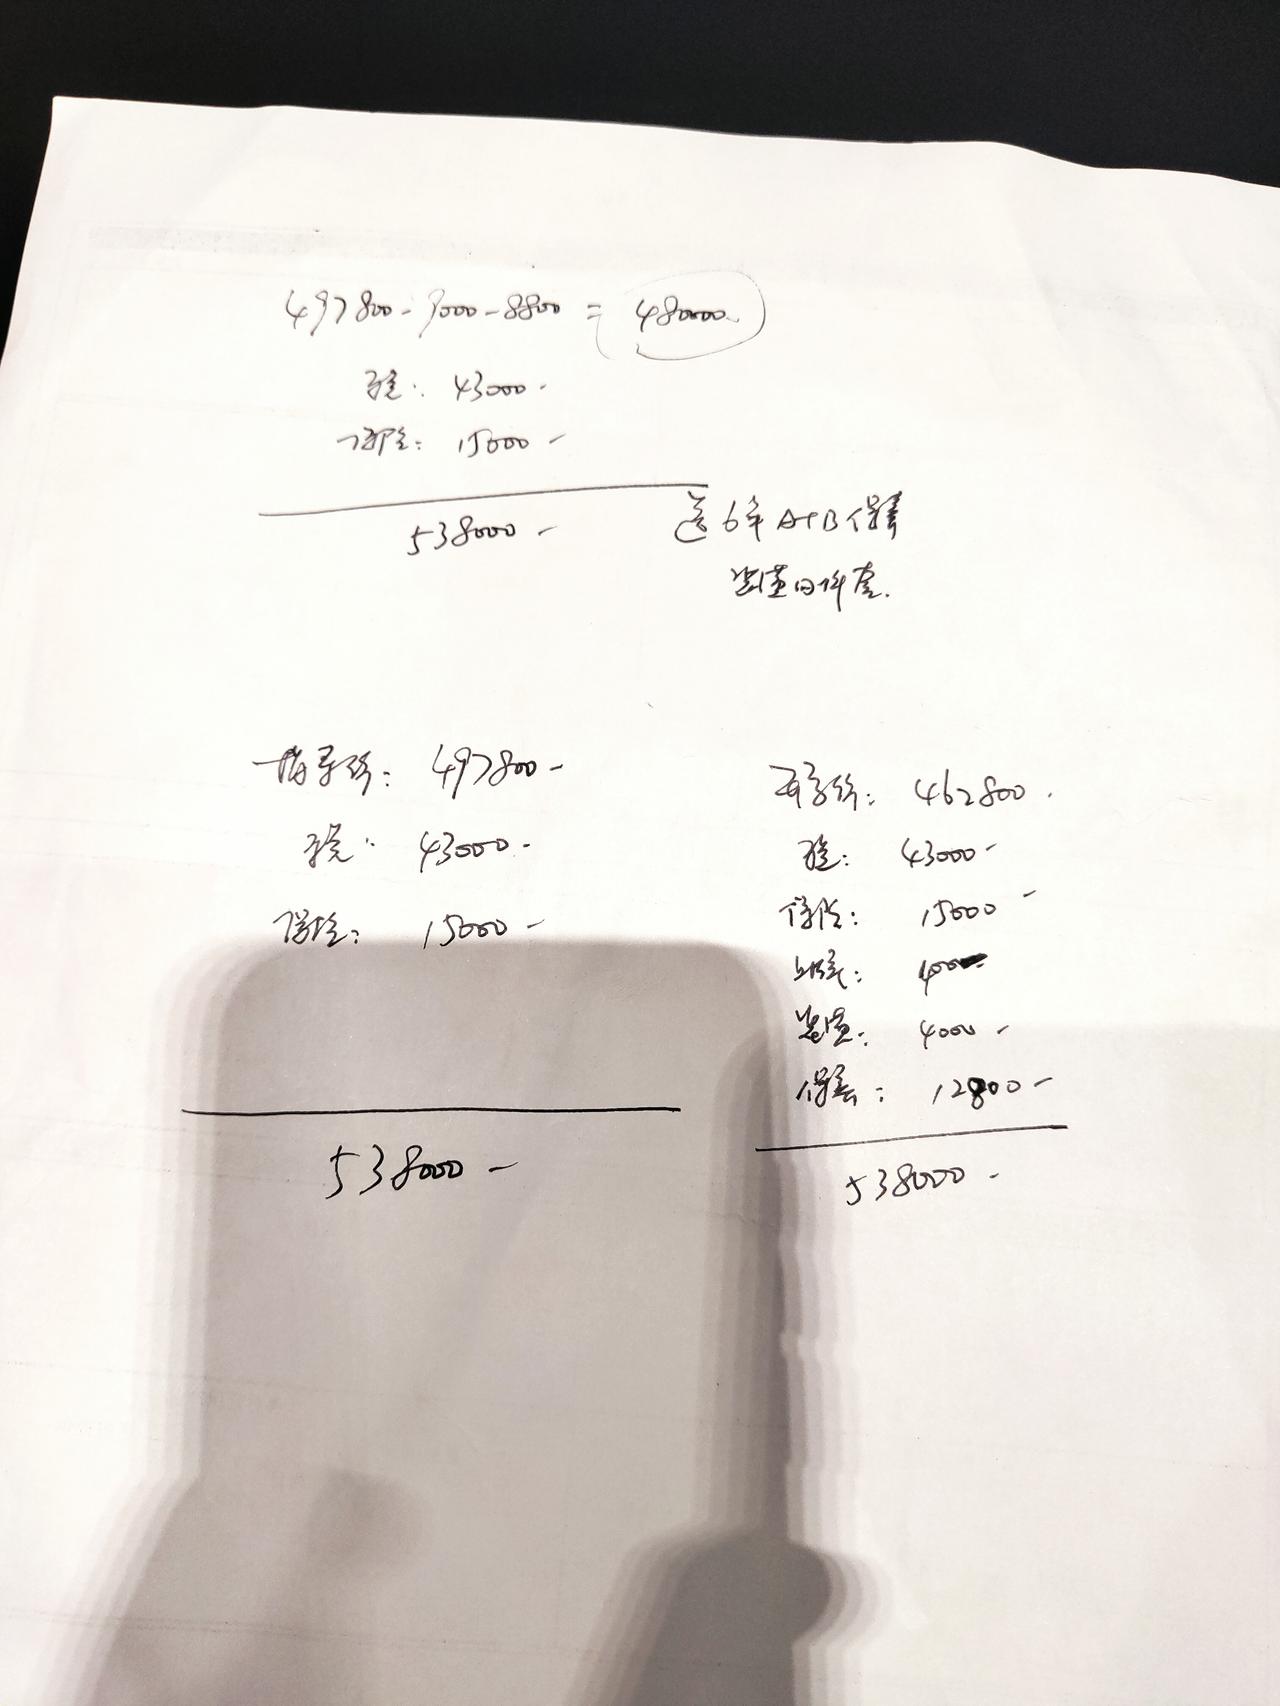 497800-9000-8800 = 480000.
税: 43000-
保险: 15000-
538000-
送6年A+B保养
装潢四件套.
指导价: 497800-
税: 43000-
保险: 15000-
538000-
开票价: 462800.
税: 43000-
保险: 15000-
上牌: 400
装潢: 4000-
保养: 12800-
538000-